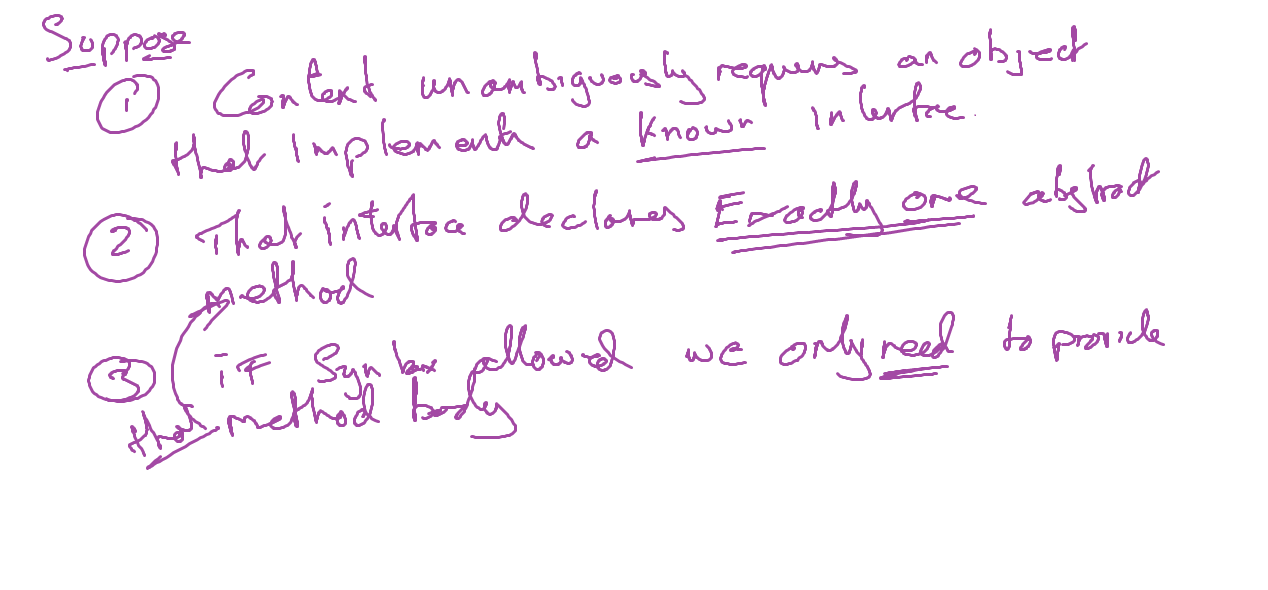 Suppose
① Context unambiguously requires an object
that implements a known interface.
② That interface declares Exactly one abstract
method
③ iF Syntax allowed we only need to provide
that method body